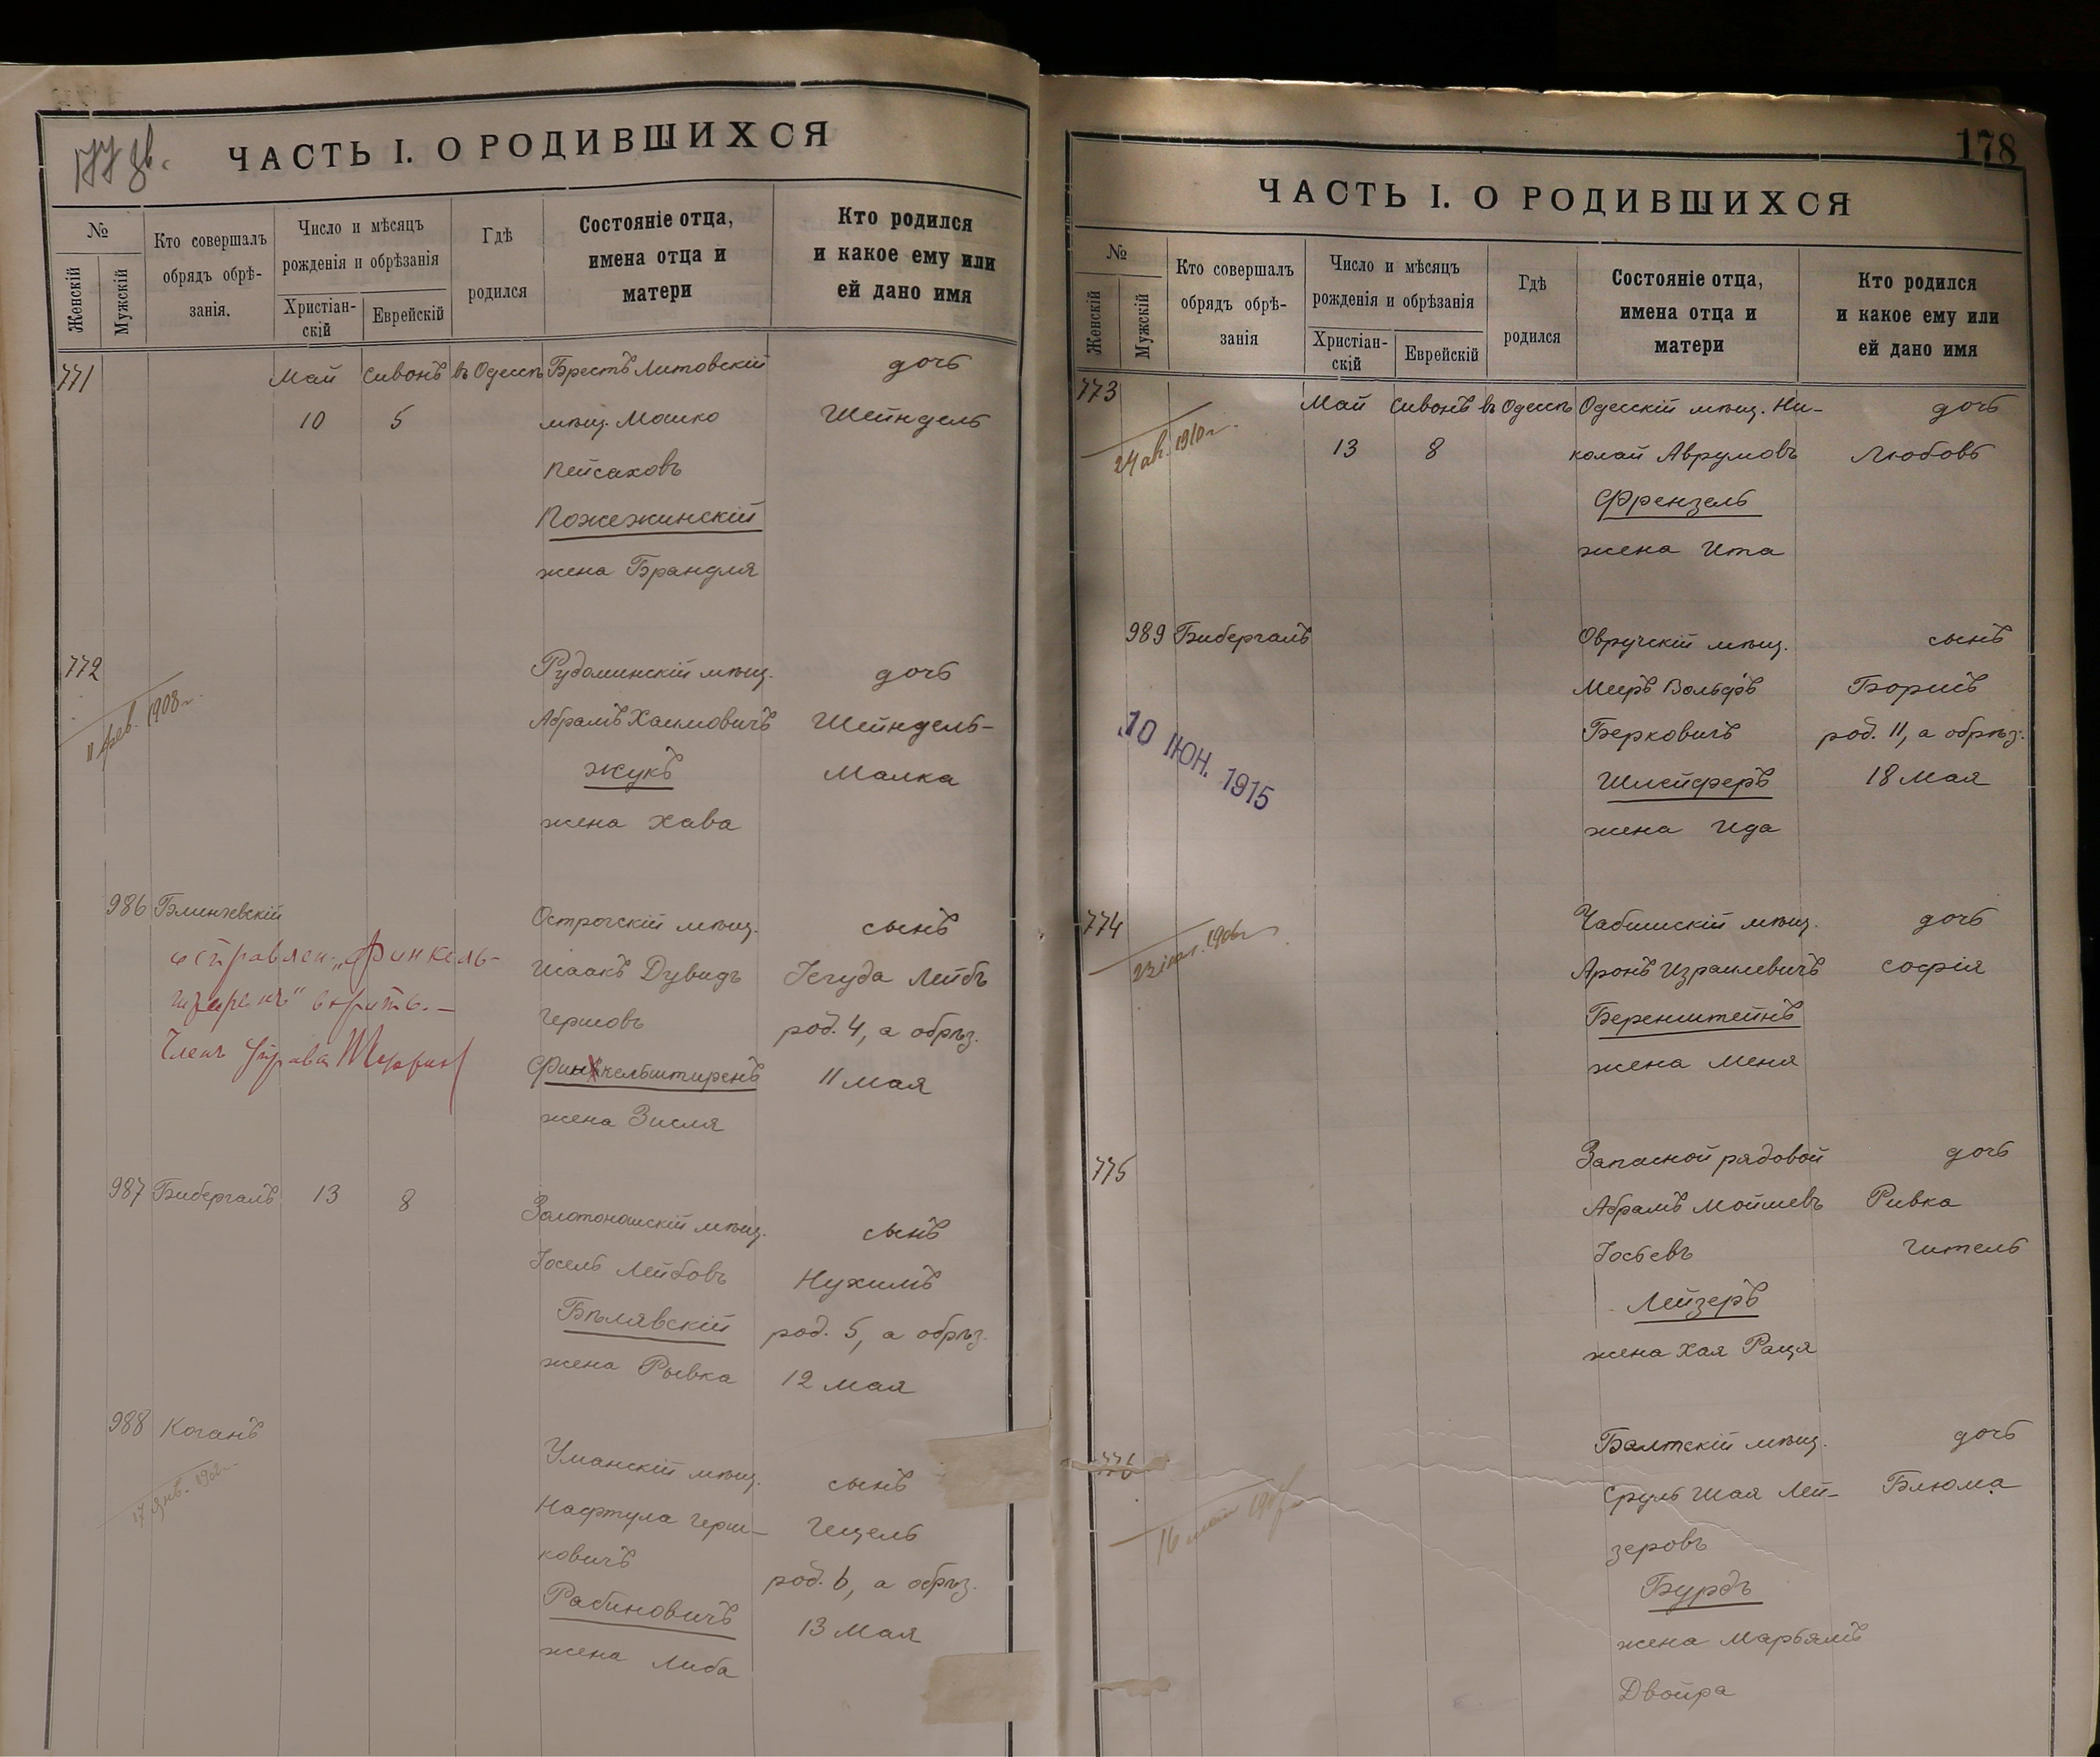 177 зв.
ЧАСТЬ I. О РОДИВШИХСЯ
№
Женскій
Мужскій
Кто совершалъ
обрядъ обрѣ-
занія.
Число и мѣсяцъ
рожденія и обрѣзанія
Христіан-
скій
Еврейскій
Гдѣ
родился
Состояніе отца,
имена отца и
матери
Кто родился
и какое ему или
ей дано имя
771 Май Сивонъ въ Одессѣ Брестъ Литовскій дочь
10 5 мѣщ. Мошко Шейндель
Пейсаховъ
Пожежинскій
жена Брандля
772 Рудоминскій мѣщ. дочь
11 фев. 1908 г. Абрамъ Хаимовичъ Шейндель-
Жукъ Малка
жена Хава
986 Блинчевскій Острогскій мѣщ. сынъ
исправлен. „Финкель-
штиренъ" вѣрить. —
Членъ Управы
Исаакъ Дувидъ Іегуда Лейбъ
Гершовъ род. 4, а обрѣз.
Финкельштиренъ 11 мая
жена Зисля
987 Бибергалъ 13 8 Золотоношскій мѣщ. сынъ
Іосель Лейбовъ Нухимъ
Бѣлявскій род. 5, а обрѣз.
жена Рывка 12 мая
988 Коганъ Уманскій мѣщ. сынъ
17 янв. 1902 г. Нафтула Герш- Гецель
ковичъ род. 6, а обрѣз.
Рабиновичъ 13 мая
жена Либа
178
ЧАСТЬ I. О РОДИВШИХСЯ
№
Женскій
Мужскій
Кто совершалъ
обрядъ обрѣ-
занія
Число и мѣсяцъ
рожденія и обрѣзанія
Христіан-
скій
Еврейскій
Гдѣ
родился
Состояніе отца,
имена отца и
матери
Кто родился
и какое ему или
ей дано имя
773 Май Сивонъ въ Одессѣ Одесскій мѣщ. Ни- дочь
24 ав. 1910 г. 13 8 колай Аврумовъ Любовь
Френзель
жена Ита
989 Бибергалъ Овручскій мѣщ. сынъ
Меиръ Вольфъ Борисъ
10 ІЮН. 1915 Берковичъ род. 11, а обрѣз.
Шлейферъ 18 мая
жена Ида
774 Чабишскій мѣщ. дочь
1906 г. Аронъ Израилевичъ Софія
Беренштейнъ
жена Меня
775 Запасной рядовой дочь
Абрамъ Мойшевъ Ривка
Іосьевъ Гитель
Лейзеръ
жена Хая Раця
776 Балтскій мѣщ. дочь
16 Сруль Шая Лей- Блюма
зеровъ
Бурдъ
жена Марьямъ
Двойра